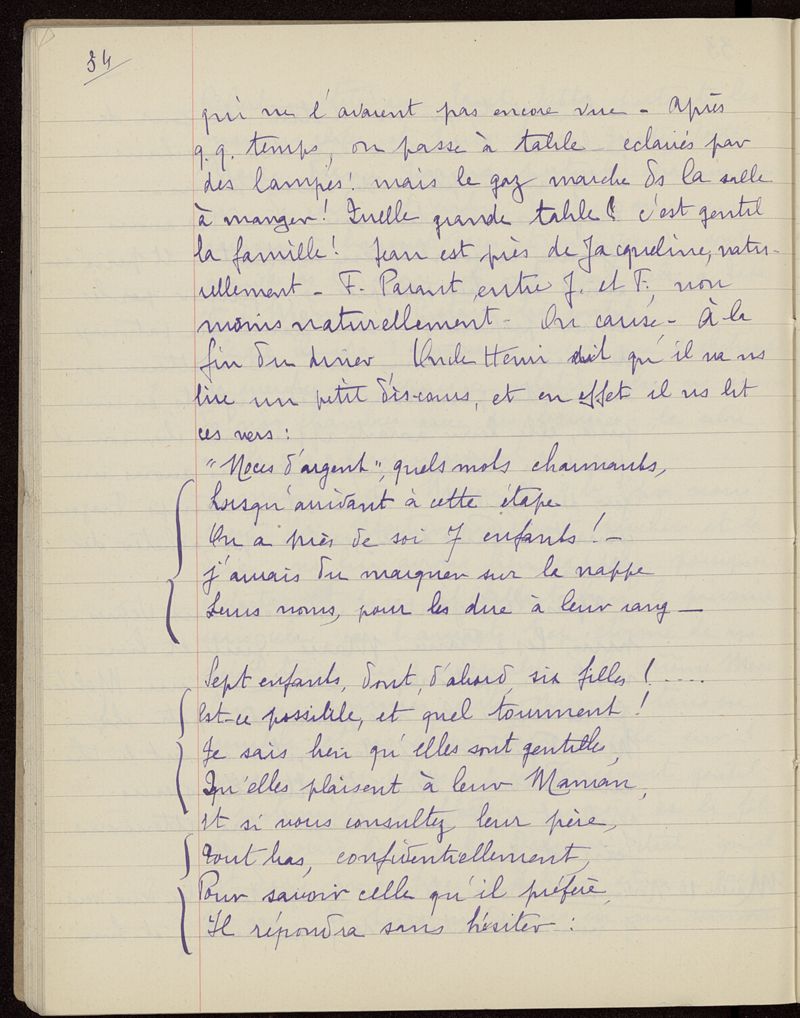 34
qui ne l'avaient pas encore vue - Après
q.q. temps, on passe à table - eclairés par
des lampes! mais le gaz marche ds la salle
à manger! Quelle grande table! c'est gentil
la famille! Jean est près de Jacqueline, natu-
rellement - F. Parant entre J. et F., non
moins naturellement - On cause - À la
fin du diner, Oncle Henri dit qu'il va ns
lire un petit discours, et en effet il ns lit
ces vers :
"Noces d'argent", quels mots charmants,
Lorsqu'arrivant à cette étape
On a près de soi 7 enfants! -
J'aurais du marquer sur la nappe
Leurs noms, pour les dire à leur rang —
Sept enfants, dont, d'abord, six filles! .....
Est-ce possible, et quel tourment!
Je sais bien qu'elles sont gentilles,
Qu'elles plaisent à leur Maman,
Et si vous consultez leur père,
Tout bas, confidentiellement,
Pour savoir celle qu'il préfère,
Il répondra sans hésiter :